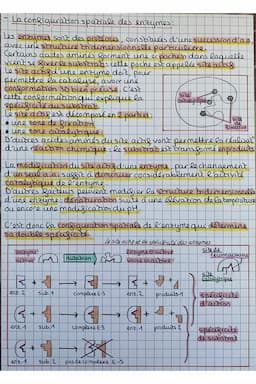 - La configuration spatiale des enzymes:
Les enzymes sont des protéines, constituées d'une succession d'a.a
avec une structure tridimensionnelle particulière.
Certains acides aminés forment une poche dans laquelle
vient se fixer le substrat, cette poche est appelée site actif.
Le site actif d'une enzyme doit, pour
permettre la catalyse, avoir une
conformation 3D bien précise. C'est
cette conformation qui explique la
spécificité du substrat.
Le site actif se décompose en 2 parties:
• une zone de fixation
• une zone catalytique.
D'autres acides aminés du site actif vont permettre la réalisation
d'une réaction chimique: le substrat est transformé en produit.
La modification du site actif d'une enzyme, par le changement
d'un seul a.a suffit à diminuer considérablement l'activité
catalytique de l'enzyme.
D'autres facteurs peuvent modifier la structure tridimensionnelle
d'une enzyme: dénaturation suite à une élévation de la température
ou encore une modification du pH.
C'est donc la configuration spatiale de l'enzyme qui détermine
sa double spécificité.
enz. 2 sub. 1 complexe E-S enz. 2 produits 2
spécificité d'action
enz. 1 sub. 1 complexe E-S enz. 1 produits 1
spécificité de substrat
enz. 1 sub. 2 pas de complexe E-S